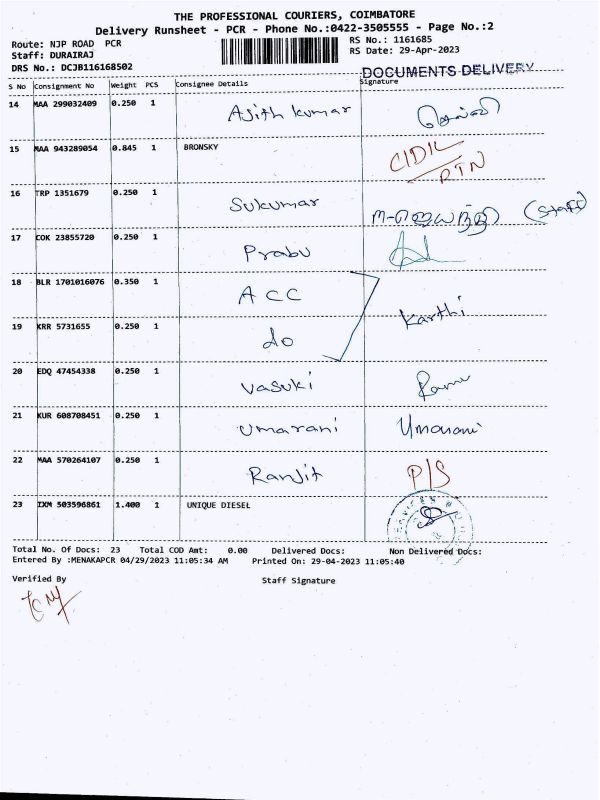 THE PROFESSIONAL COURIERS, COIMBATORE
Delivery Runsheet - PCR - Phone No.:0422-3505555 - Page No.:2
Route: NJP ROAD PCR RS No.: 1161685
Staff: DURAIRAJ RS Date: 29-Apr-2023
DRS No.: DCJB116168502
DOCUMENTS DELIVERY
S No Consignment No Weight PCS Consignee Details Signature
14 MAA 299032409 0.250 1 Ajith kumar
15 MAA 943289054 0.845 1 BRONSKY CIDIL
RTN
16 TRP 1351679 0.250 1 Sukumar ந-ஜெயந்தி (staff)
17 COK 23855720 0.250 1 Prabu
18 BLR 1701016076 0.350 1 ACC Karthi
19 KRR 5731655 0.250 1 do
20 EDQ 47454338 0.250 1 Vasuki
21 KUR 608708451 0.250 1 Umarani Umarani
22 MAA 570264107 0.250 1 Ranjit P/S
23 IXM 503596861 1.400 1 UNIQUE DIESEL
Total No. Of Docs: 23 Total COD Amt: 0.00 Delivered Docs: Non Delivered Docs:
Entered By :MENAKAPCR 04/29/2023 11:05:34 AM Printed On: 29-04-2023 11:05:40
Verified By Staff Signature